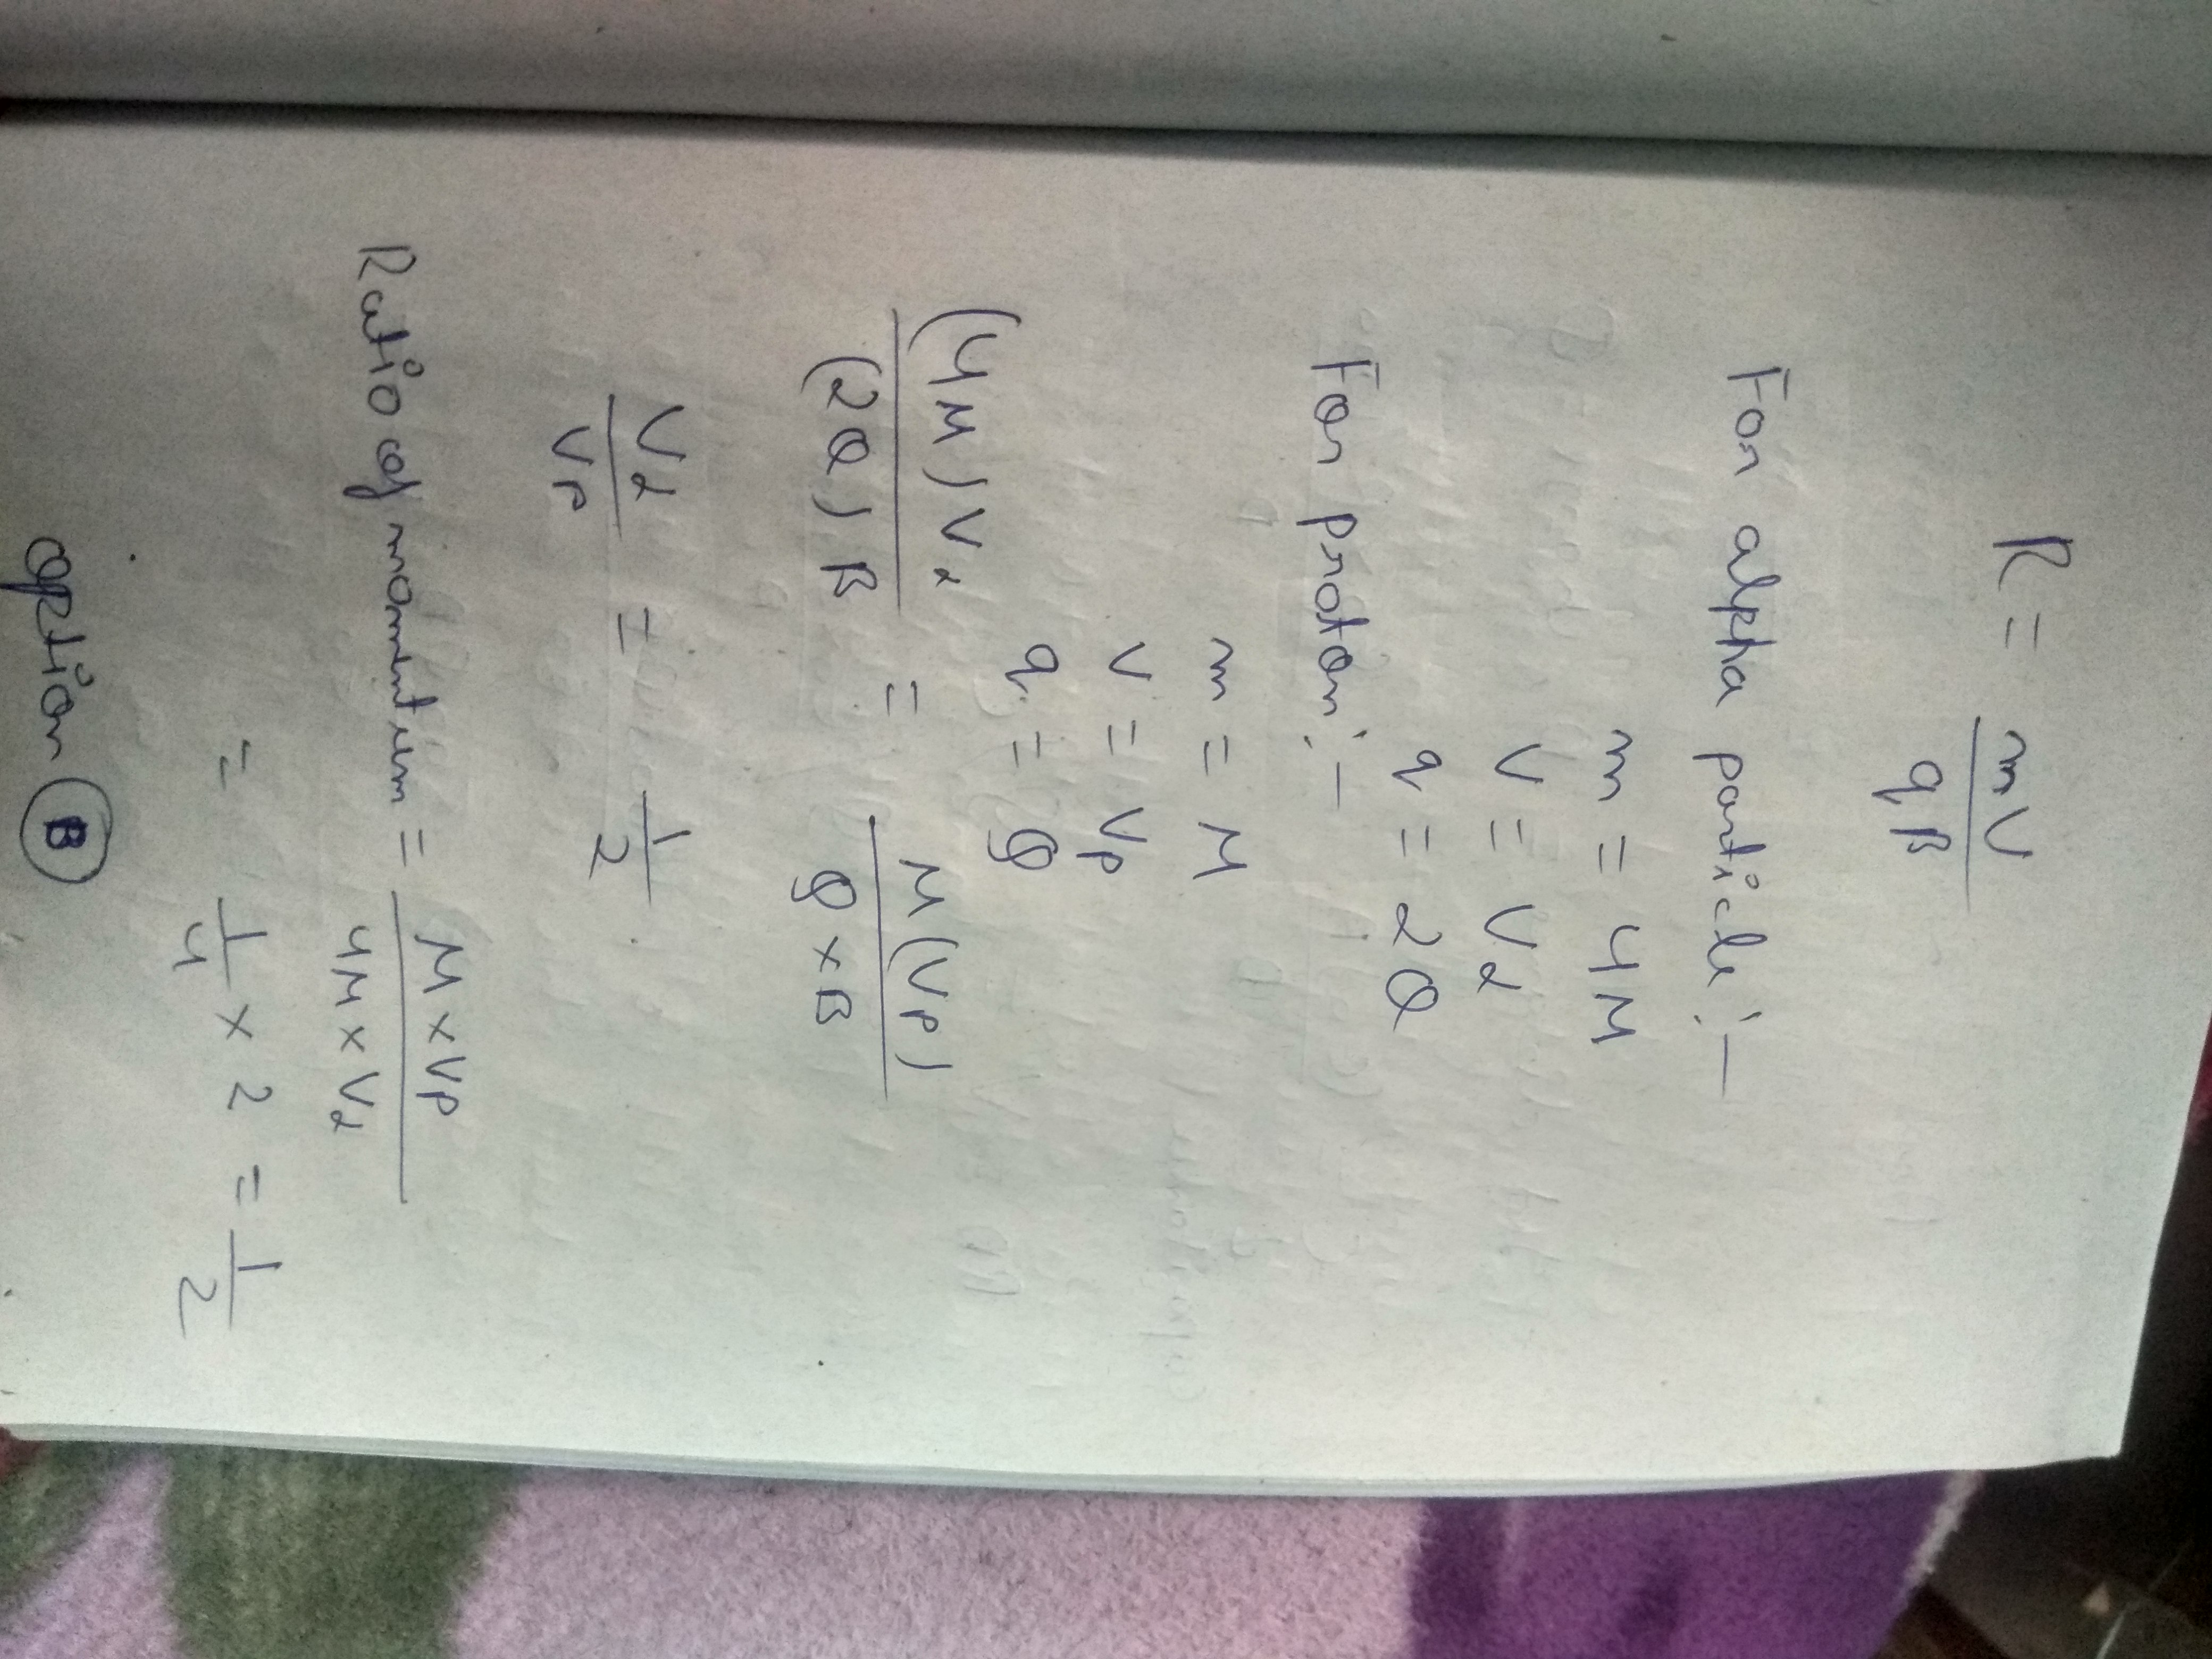 R = mV / qB
For alpha particle :-
m = 4M
V = Vα
q = 2Q
For proton :-
m = M
V = Vp
q = Q
(4M)Vα / (2Q)B = M(Vp) / Q×B
Vα / Vp = 1/2
Ratio of momentum = M×Vp / 4M×Vα
= 1/4 × 2 = 1/2
option (B)